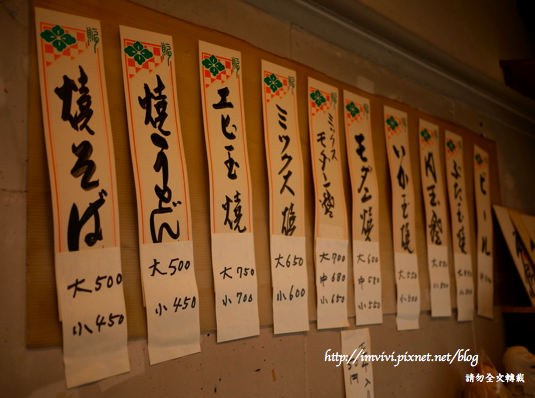 焼そば
大500
小450
焼うどん
大500
小450
エビ玉焼
大750
小700
ミックス焼
大650
小600
ミックス
モダン焼
大700
中680
小650
モダン焼
大600
中580
小550
いか玉焼
肉玉焼
ぶた玉焼
ビール
http://imvivi.pixnet.net/blog
請勿全文轉載